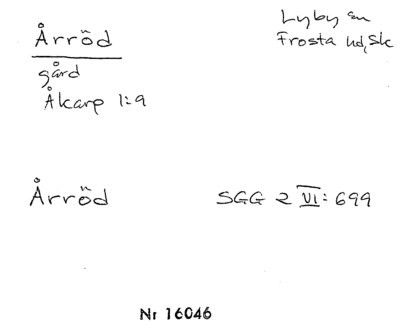 Årröd
Lyby sn
Frosta hd, Sk
gård
Åkarp 1:9
Årröd SGG 2 VI: 699
Nr 16046